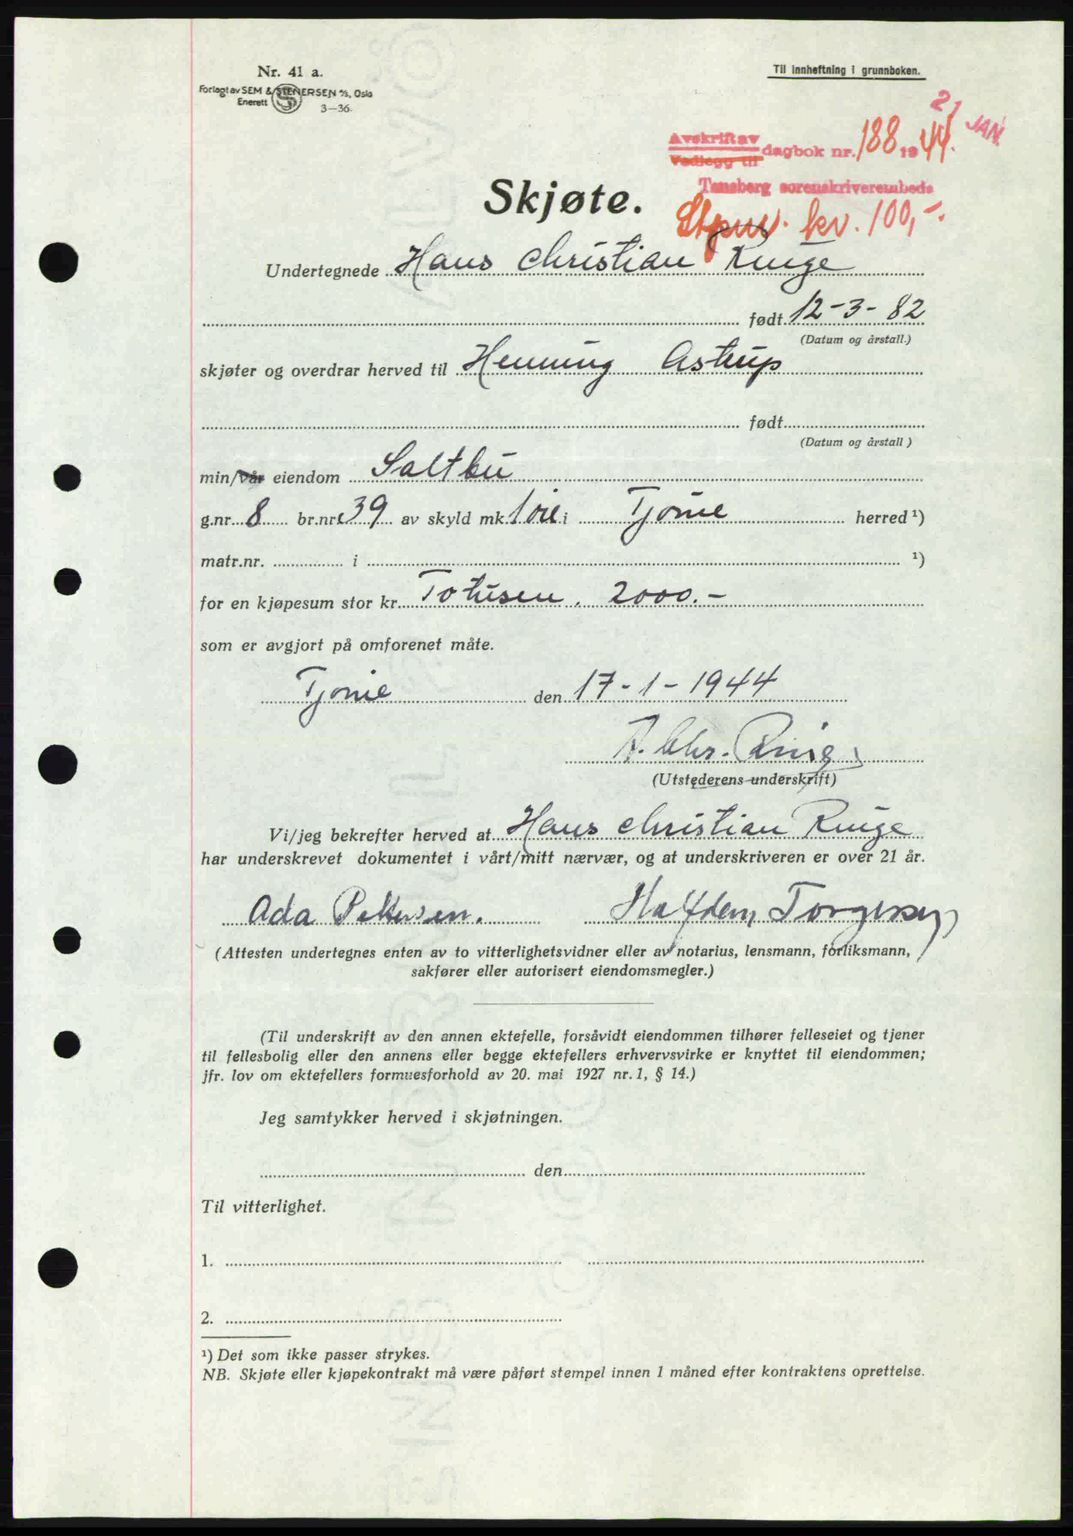 Nr. 41 a.
Forlagt av SEM & STENERSEN A/S, Oslo
Enerett
3—36
Til innheftning i grunnboken.
21 JAN.
Avskrift av
Vedlegg til
dagbok nr. 188 1944.
Tønsberg sorenskriverembede
kv. 100,-.
Skjøte.
Undertegnede Hans Christian Ringe
født 12-3-82
(Datum og årstall.)
skjøter og overdrar herved til Henning Astrup
født
(Datum og årstall )
min/vår eiendom Saltbu
g.nr. 8 br.nr. 39 av skyld mk. 1 øre i Tjøme herred ¹)
matr.nr. i ¹)
for en kjøpesum stor kr. Totusen. 2000.-
som er avgjort på omforenet måte.
Tjøme den 17-1-1944
H. Chr. Ringe
(Utstederens underskrift)
Vi/jeg bekrefter herved at Hans Christian Ringe
har underskrevet dokumentet i vårt/mitt nærvær, og at underskriveren er over 21 år.
Ada Pettersen. Halfdan Torgersen
(Attesten undertegnes enten av to vitterlighetsvidner eller av notarius, lensmann, forliksmann,
sakfører eller autorisert eiendomsmegler.)
(Til underskrift av den annen ektefelle, forsåvidt eiendommen tilhører felleseiet og tjener
til fellesbolig eller den annens eller begge ektefellers erhvervsvirke er knyttet til eiendommen;
jfr. lov om ektefellers formuesforhold av 20. mai 1927 nr. 1, § 14.)
Jeg samtykker herved i skjøtningen.
den
Til vitterlighet.
1.
2.
¹) Det som ikke passer strykes.
NB. Skjøte eller kjøpekontrakt må være påført stempel innen 1 måned efter kontraktens oprettelse.